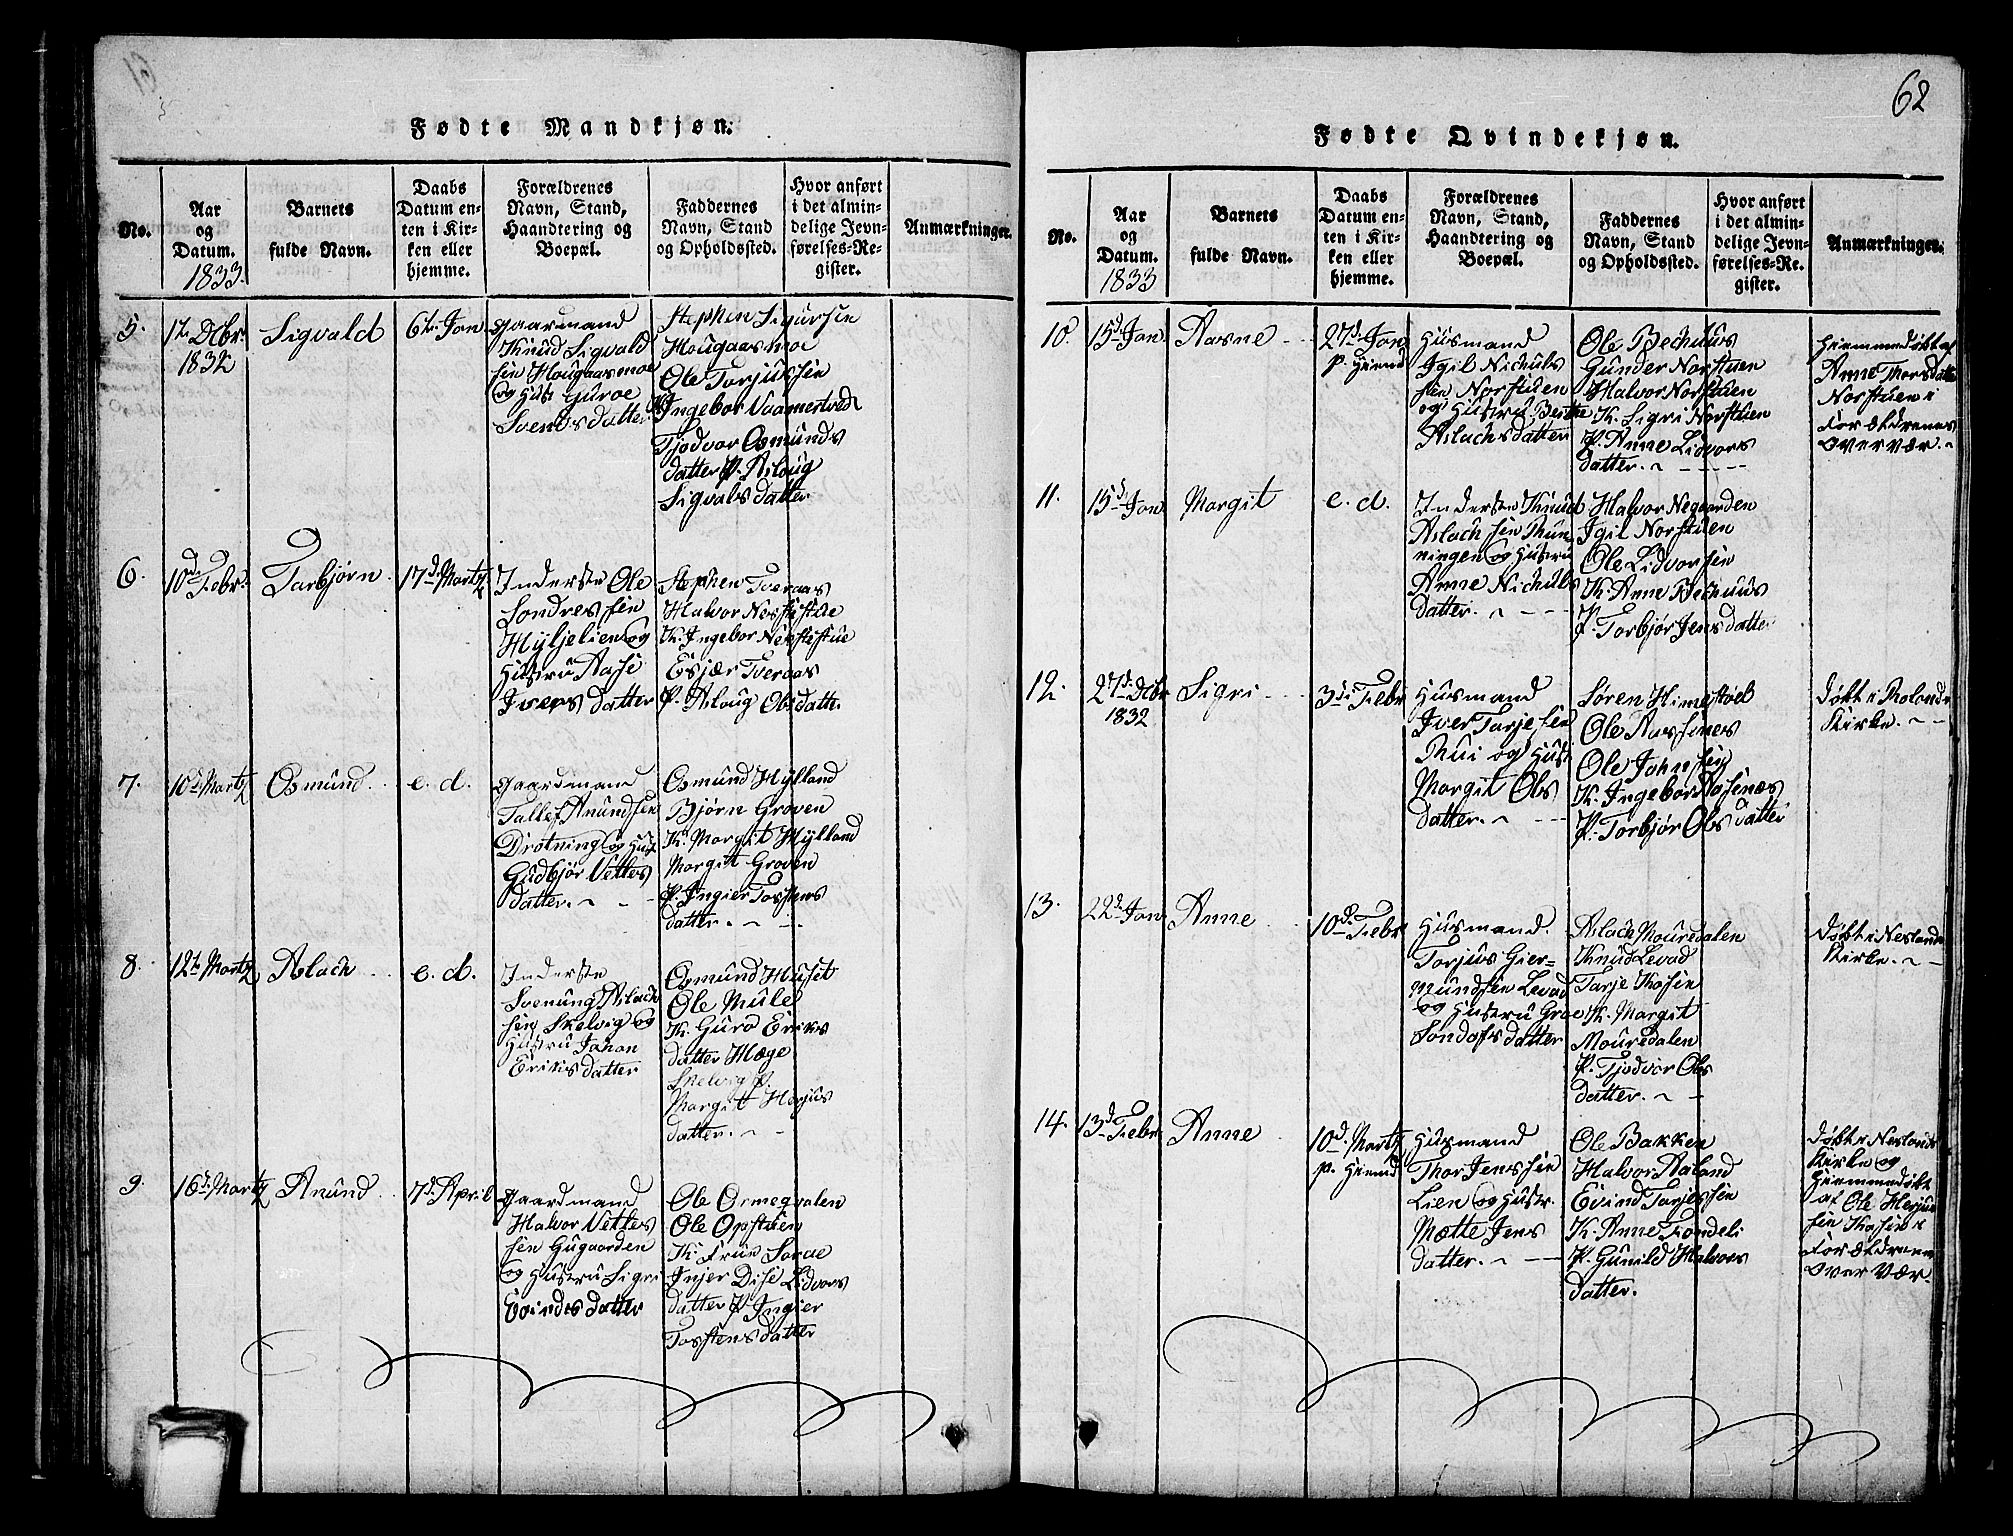 Fødte Mandkjøn.
No.
Aar
og
Datum.
1833.
Barnets
fulde Navn.
Daabs
Datum en-
ten i Kir-
ken eller
hjemme.
Forældrenes
Navn, Stand,
Haandtering og
Boepæl.
Faddernes
Navn, Stand
og Opholdssted.
Hvor anført
i det almin-
delige Jevn-
førelses-Re-
gister.
Anmærkninger.
5.
12te Dcbr.
1832
Sigvald
6te Jan
Gaarmand
Knud Sigvald
sen Hougaasmoe
og Hust Guroe
Svendsdatter
Stephen Sigursen
Hougaasmoe
Ole Torjussen
Ingebor Vaamertved
Tjodvor Osmunds
datter P. Aslaug
Sigvalsdatter
6.
10d. Febr.
Torbjørn
17d. Martz
Inderste Ole
Sondressen
Hyljelien og
Hustru Aase
Iversdatter
Stephen Tveraas
Halvor Nerstestue
K. Ingebor Nerstestue
Esjær Tveraas
P. Aslaug Olsdatte.
7.
10d. Martz
Osmund
e. d.
Gaardmand
Tallef Anundsen
Drotning og Hust
Gudbjør Vetles
datter.
Osmund Hylland
Bjørn Groven
K. Margit Hylland
Margit Groven
P. Ingier Tostens
datter.
8.
12te Martz
Aslach
e. d.
Inderste
Svenung Aslach
sen Skelvig og
Hustru Johan
Eriksdatter
Osmund Huset
Ole Mule
K. Guro Eriks
datter Hæge
Skelvig P.
Margit Herjus
datter.
9.
16d. Martz
Anund
7d. April
Gaardmand
Halvor Vetles
sen Gugaarden
og Hustru Sigri
Evindsdatter
Ole Ormegvalen
Ole Opstuen
K. Frue Sorae
Injer Dise Lidvors
datter P. Ingier
Tostensdatter
62
Fødte Qvindekjøn.
No.
Aar
og
Datum.
1833
Barnets
fulde Navn.
Daabs
Datum en-
ten i Kir-
ken eller
hjemme.
Forældrenes
Navn, Stand,
Haandtering og
Boepæl.
Faddernes
Navn, Stand
og Opholdssted.
Hvor anført
i det almin-
delige Jevn-
førelses-Re-
gister.
Anmærkninger.
10.
15d. Jan
Aasne
27d. Jan
p. Hiemd
Husmand
Igil Nichuls
sen Norstuen
og Hustru Berthe
Aslachsdatter
Ole Bechuus
Gunder Norstuen
Halvor Norstuen
K. Sigri Norstuen
P. Anne Lidvors
datter.
Hiemmedøbt af
Anne Thorsdatte
Norstuen i
Forældrenes
Overvær.
11.
15d. Jan
Margit
e. d.
Inderste Knud
Aslachsen Thun-
ningen og Hustru
Anne Nichuls
datter.
Halvor Negaarden
Igil Norstuen
Ole Lidvorsen
K. Anne Bechuus
P. Torbjør Jensdatter
12.
27d. Dcbr
1832
Sigri
3di Febr
Husmand
Iver Tarjesen
Thui og Hust
Margit Ols
datter.
Søren Himestvel
Ole Aassenes
Ole Johnsen
K. Ingebor Aasenæs
P. Torbjør Olsdatter
Døbt i Rolands
Kirke.
13.
22d. Jan
Anne
10d. Febr
Husmand.
Torjus Gier-
mundsen Levad
og Hustru Groe
Sondresdatter
Aslach Mouredalen
Knud Levad
Tarje Kosin
K. Margit
Mouredalen
P. Tjodvor Ols
datter.
Døbt i Neslands
Kirke.
14.
13d. Febr
Anne
10d. Martz
p. Hiemd
Husmand
Thor Jenssen
Lien og Hustr.
Mætte Jens
datter.
Ole Bakken
Halvor Aaland
Evind Tarjessen
K. Anne Fondeli
P. Gunild Halvors
datter.
Døbt i Neslands
Kirke og
Hiemmedøbt
af Ole Herjus
sen Kosin i
Forældrenes
Overvær.